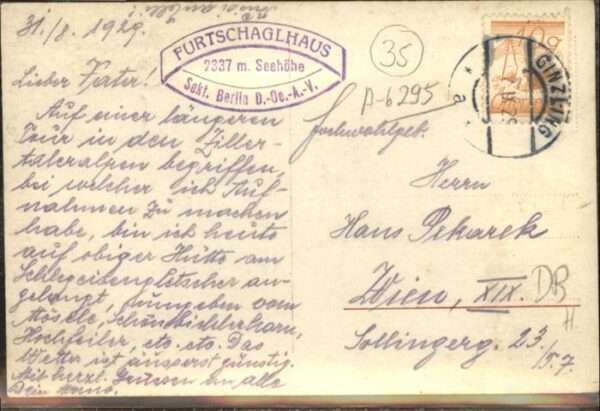 31./8. 1929.
FURTSCHAGLHAUS
2337 m. Seehöhe
Sekt. Berlin D.-Oe.-A.-V.
35
40g
GINZLING
P-6295
Lieber Vater!
Auf einer längeren
Tour in den Ziller-
taleralpen begriffen,
bei welcher ich Auf-
nahmen zu machen
habe, bin ich heute
auf obiger Hütte am
Schlegeisengletscher an-
gelangt, umgeben vom
Mösele, Schönbichlerhorn,
Hochfeiler, etc. etc. Das
Wetter ist äusserst günstig.
Mit herzl. an alle
Dein
Hochwohlgeb.
Herrn
Hans Pekarek
Wien, XIX.
Sollingerg. 23
DB
H.